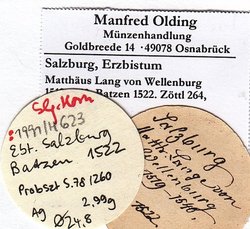 Manfred Olding
Münzenhandlung
Goldbreede 14 · 49078 Osnabrück
Salzburg, Erzbistum
Matthäus Lang von Wellenburg
Batzen 1522. Zöttl 264,
Slg. Kom
623
Ebt. Salzburg
Batzen 1522
Probszt S. 78 / 260
Ag 2,99g
Ø 24,8
Salzburg
Matth. Lang von
Wellenburg
1519 - 1540.
1522